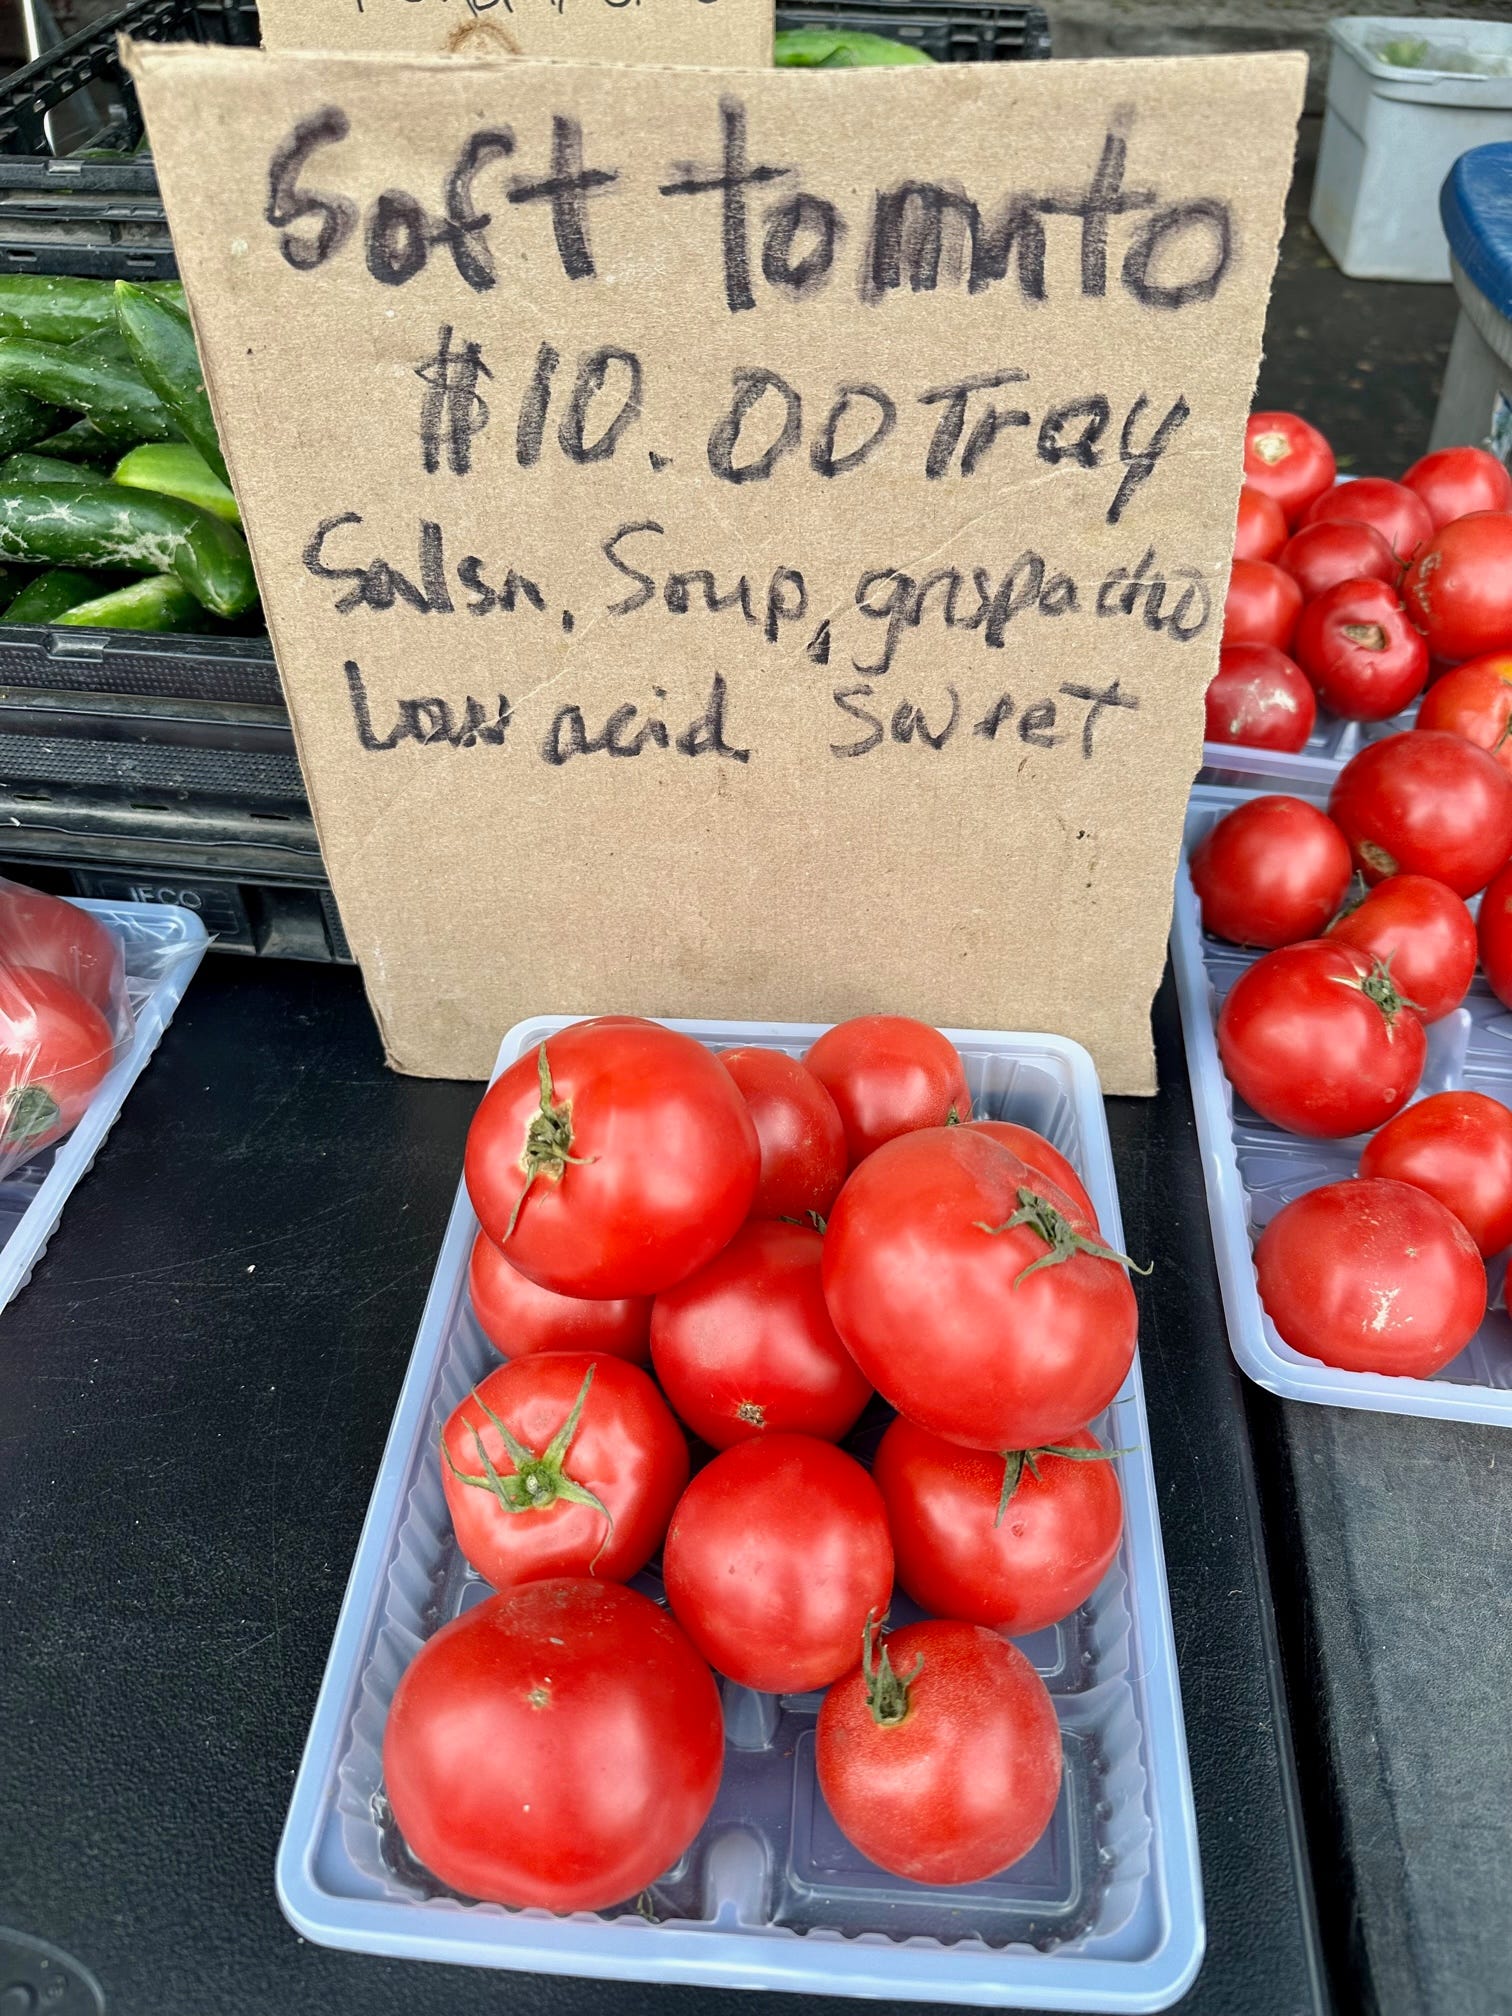 Soft tomato
$10.00 Tray
Salsa, Soup, gaspacho
Low acid Sweet
IFCO